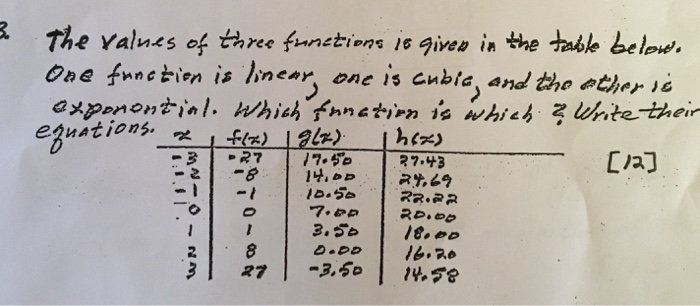 3. The values of three functions is given in the table below.
One function is linear, one is cubic, and the other is
exponential. Which function is which? Write their
equations.
x f(x) g(x) h(x)
[12]
-3 -27 17.50 27.43
-2 -8 14.00 24.69
-1 -1 10.50 22.22
0 0 7.00 20.00
1 1 3.50 18.00
2 8 0.00 16.20
3 27 -3.50 14.58